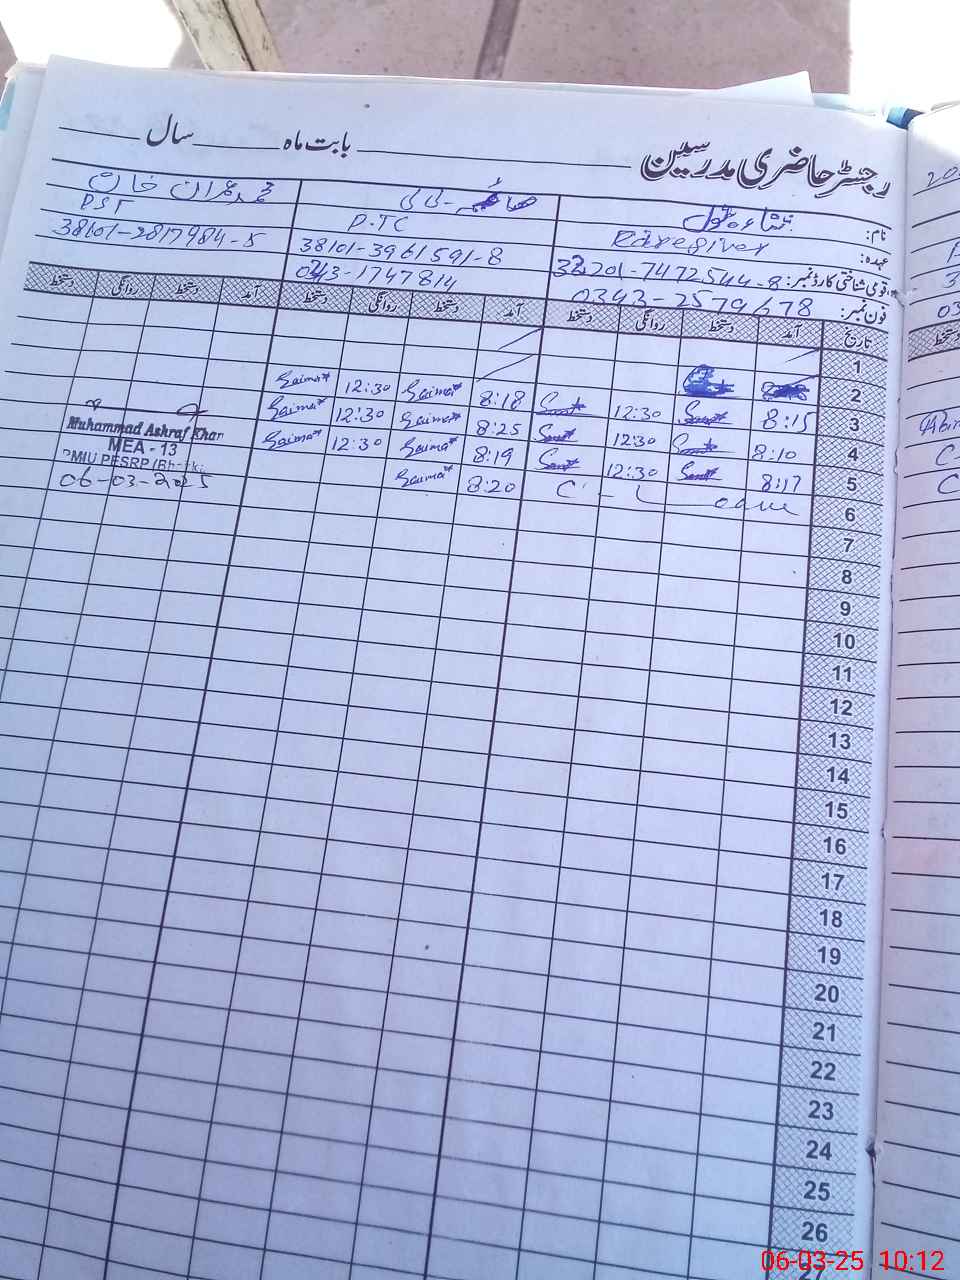 رجسٹر حاضری مدرسین ــــــ بابت ماہ ــــــ سال ــــــ
نام: صائمہ بی بی محمد عمران خان
عہدہ: Caregiver P.TC PST
قومی شناختی کارڈ نمبر: 38201-7472544-8 38101-3961591-8 38101-2817984-5
فون نمبر: 0343-2579678 0343-1747814
تاریخ آمد دستخط روانگی دستخط آمد دستخط روانگی دستخط آمد دستخط روانگی دستخط
1
2
3 8:15 12:30 8:18 Saima 12:30 Saima
4 8:10 12:30 8:25 Saima 12:30 Saima
5 8:17 12:30 8:19 Saima 12:30 Saima
6 C - Leave 8:20 Saima
Muhammad Ashraf Khan
MEA - 13
PMIU PESRP
06-03-2025
7
8
9
10
11
12
13
14
15
16
17
18
19
20
21
22
23
24
25
26
27
06-03-25 10:12